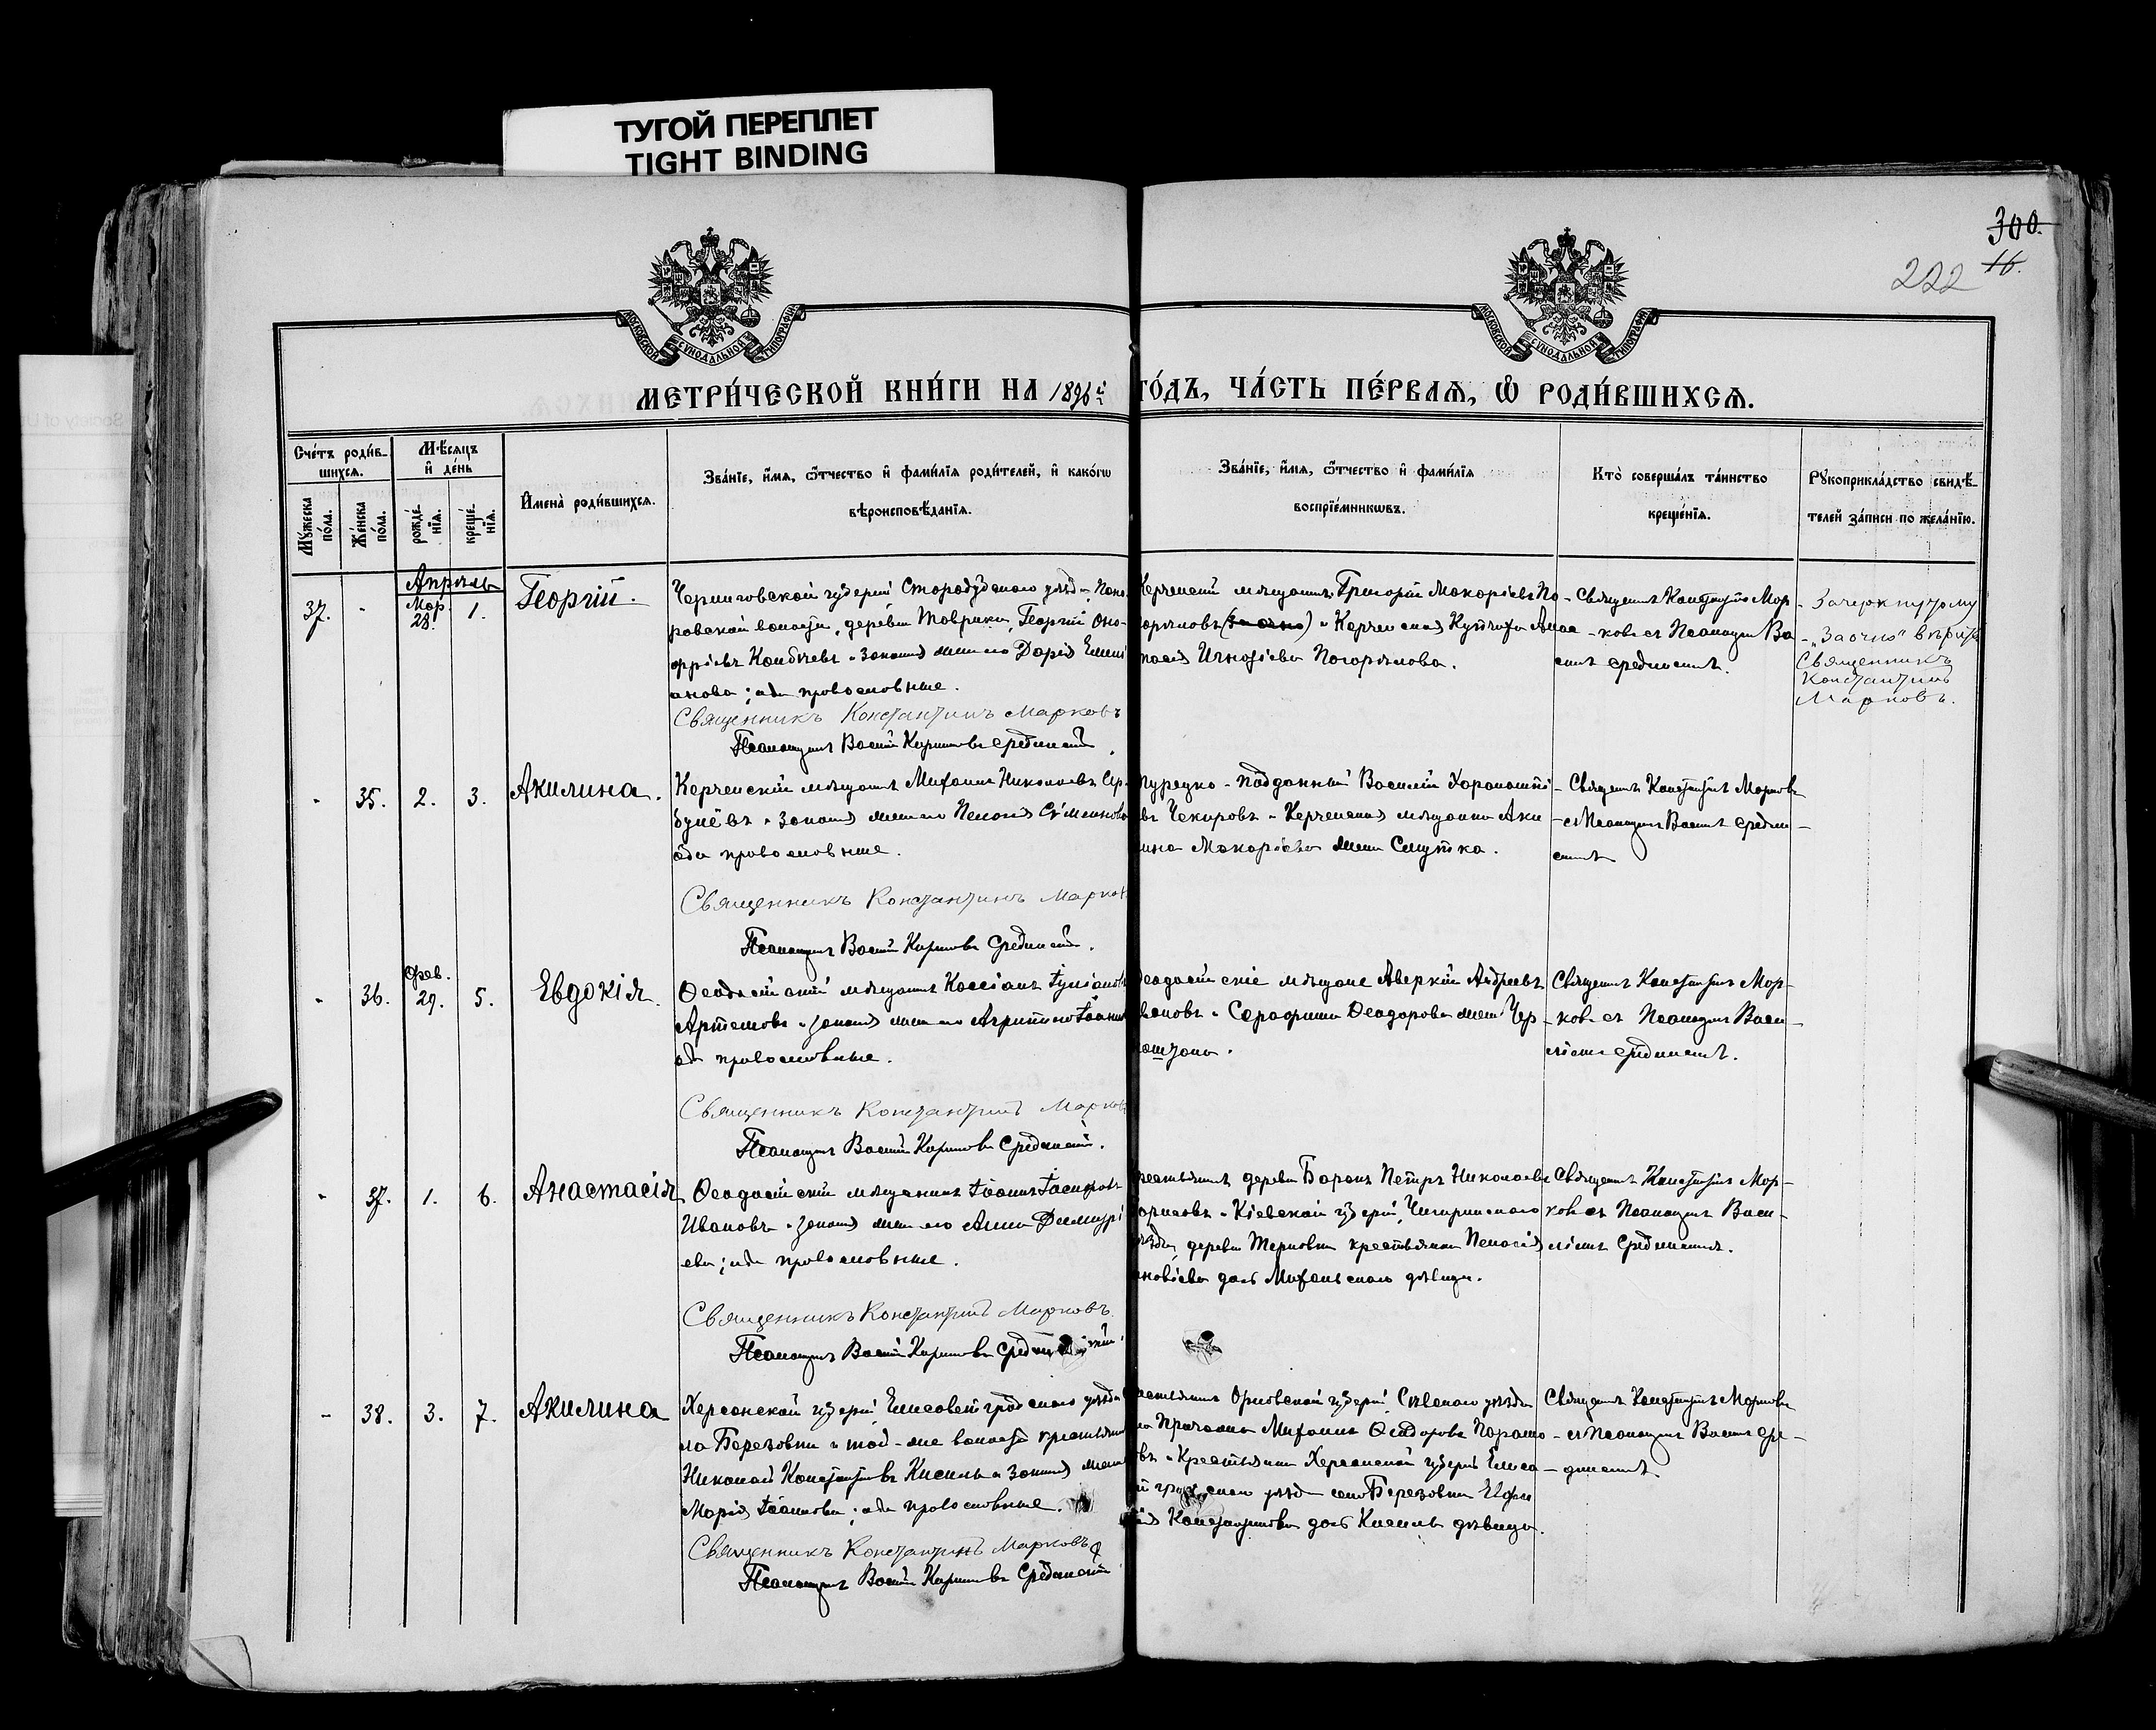 ТУГОЙ ПЕРЕПЛЕТ
TIGHT BINDING
300.
16.
222
МОСКОВСКОЙ СУНОДАЛЬНОЙ ТИПОГРАФІИ
МОСКОВСКОЙ СУНОДАЛЬНОЙ ТИПОГРАФІИ
МЕТРИ́ЧЕСКОЙ КНИ́ГИ НА 1896й ГО́ДЪ, ЧА́СТЬ ПЕ́РВАѦ, Ѡ҆ РОДИ́ВШИХСѦ.
Сче́тъ роди́в-
шихсѧ.
Мꙋ́жеска по́ла.
Же́нска по́ла.
Мѣ́сѧцъ
и҆ де́нь
рожде́-
нїѧ.
креще́-
нїѧ.
И҆мена̀ роди́вшихсѧ.
Зва́нїе, и҆́мѧ, ѻ҆́тчество и҆ фами́лїѧ роди́телей, и҆ како́гѡ
вѣроисповѣ́данїѧ.
Зва́нїе, и҆́мѧ, ѻ҆́тчество и҆ фами́лїѧ
воспрїе́мникѡвъ.
Кто̀ соверша́лъ та́инство
креще́нїѧ.
Рꙋкоприкла́дство свидѣ́-
телей за́писи по жела́нїю.
Апрѣль
37. - Мар. 28. 1. Георгій.
Черниговской губерніи Стародубскаго уѣзда Поно-
ровской волости, деревни Таврики, Георгій Оно-
фріевъ и законная жена его Дарія Емилі
анова; оба православные.
Священникъ Константинъ Марковъ
Псаломщикъ Василій Кириловъ Срединскій.
Керченскій мѣщанинъ Григорій Макаріевъ По-
горѣловъ (заочно) и Керченская Анас
тасія Игнатіева Погорѣлова.
Священникъ Константинъ Мар-
ковъ съ Псаломщ. Ва
Срединскимъ.
Зачеркнутому
"Заочно" вѣрить
Священникъ
Константинъ
Марковъ.
- 35. 2. 3. Акилина.
Керченскій мѣщанинъ Михаилъ Николаевъ
и законная жена его Пелагія Сімеонова
оба православные.
Священникъ Константинъ Марковъ
Псаломщикъ Василій Кириловъ Срединскій.
Турецко-подданный Василій
въ Чекировъ и Керченская мѣщанка Аки
лина Макаріева Смутка.
Священникъ Константинъ Марковъ
съ Псаломщ. Васил. Средин-
скимъ
- 36. Фев. 29. 5. Евдокія.
Ѳеодосійскій мѣщанинъ Кассіанъ Іуліановъ
Артемовъ и законная жена его Агрипина Іоаннова
оба православные.
Священникъ Константинъ Марковъ
Псаломщикъ Василій Кириловъ Срединскій.
Ѳеодосійскіе мѣщане Аверкій Андреевъ
Ивановъ и Серафима Ѳеодорова
Священникъ Константинъ Мар-
ковъ съ Псаломщ. Васи-
ліемъ Срединскимъ.
- 37. 1. 6. Анастасія
Ѳеодосійскій мѣщанинъ Іоаннъ
Ивановъ и законная жена его Анна Димитрі
ева; оба православные.
Священникъ Константинъ Марковъ
Псаломщикъ Василій Кириловъ Срединскій
Крестьянинъ деревни Баронъ Петръ Николаевъ
Борисовъ и Кіевской губерніи, Чигиринскаго
уѣзда, деревни Терновки крестьянка Пелагія
дѣвица.
Священникъ Константинъ Мар-
ковъ съ Псаломщ. Васи-
ліемъ Срединскимъ.
- 38. 3. 7. Акилина
Херсонской губерніи, Елисоветградскаго уѣзда
села Березовки и той-же волости крестьянинъ
Николай Константиновъ Кисиль и законная жена
Марія Іоаннова; оба православные.
Священникъ Константинъ Марковъ
Псаломщикъ Василій Кириловъ Срединскій
Крестьянинъ Орловской губерніи, Сѣвскаго уѣзда
Михаилъ Ѳеодоровъ
въ и Крестьянка Херсонской губерніи Елиса
ветградскаго уѣзда села Березовки
Константинова дочь Кисиль дѣвица.
Священникъ Константинъ Марковъ
съ Псаломщ. Васил. Сре-
динскимъ